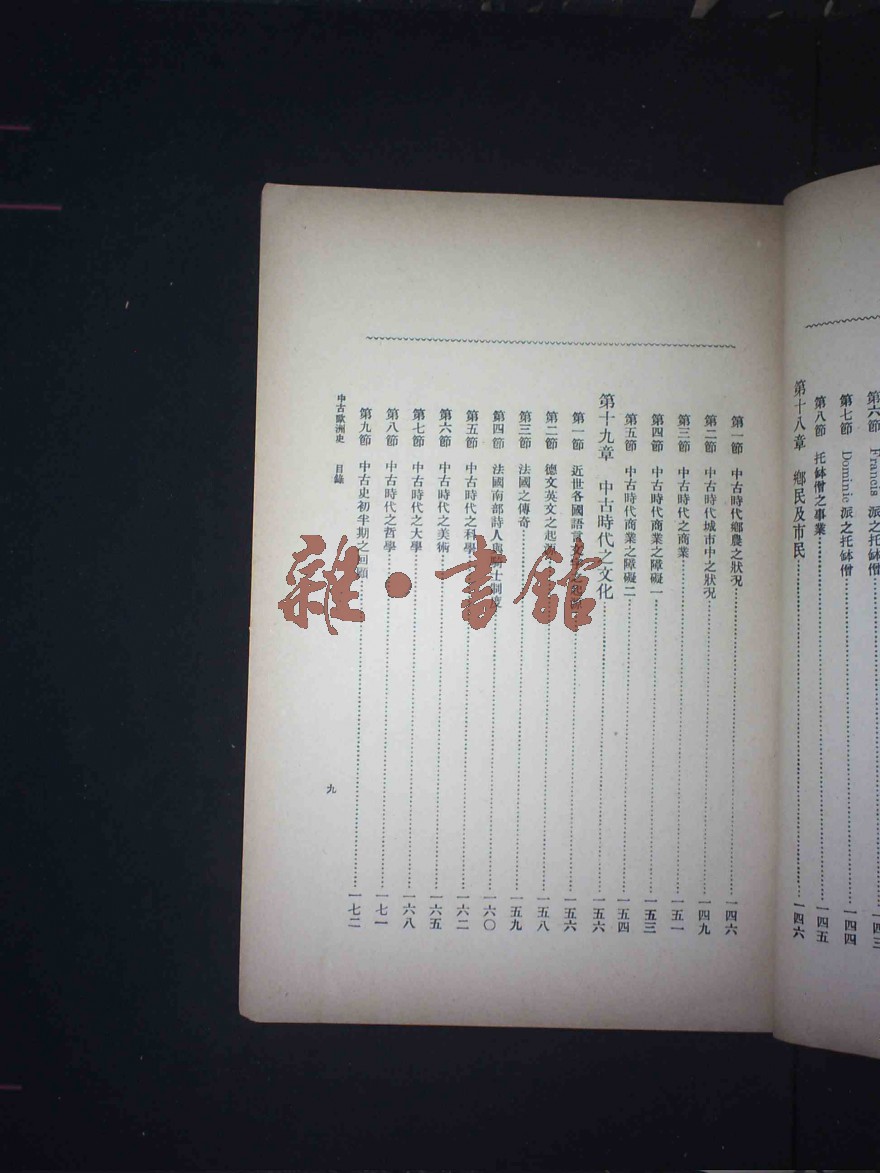 第六節 Francis 派之托鉢僧……一四三
第七節 Dominic 派之托鉢僧……一四四
第八節 托鉢僧之事業……一四五
第十八章 鄉民及市民……一四六
第一節 中古時代鄉農之狀況……一四六
第二節 中古時代城市中之狀況……一四九
第三節 中古時代之商業……一五一
第四節 中古時代商業之障礙一……一五三
第五節 中古時代商業之障礙二……一五四
第十九章 中古時代之文化……一五六
第一節 近世各國語言文字之起源……一五六
第二節 德文英文之起源……一五八
第三節 法國之傳奇……一五九
第四節 法國南部詩人與騎士制度……一六〇
第五節 中古時代之科學……一六二
第六節 中古時代之美術……一六五
第七節 中古時代之大學……一六八
第八節 中古時代之哲學……一七一
第九節 中古史初半期之回顧……一七二
中古歐洲史 目錄 九
雜·書館